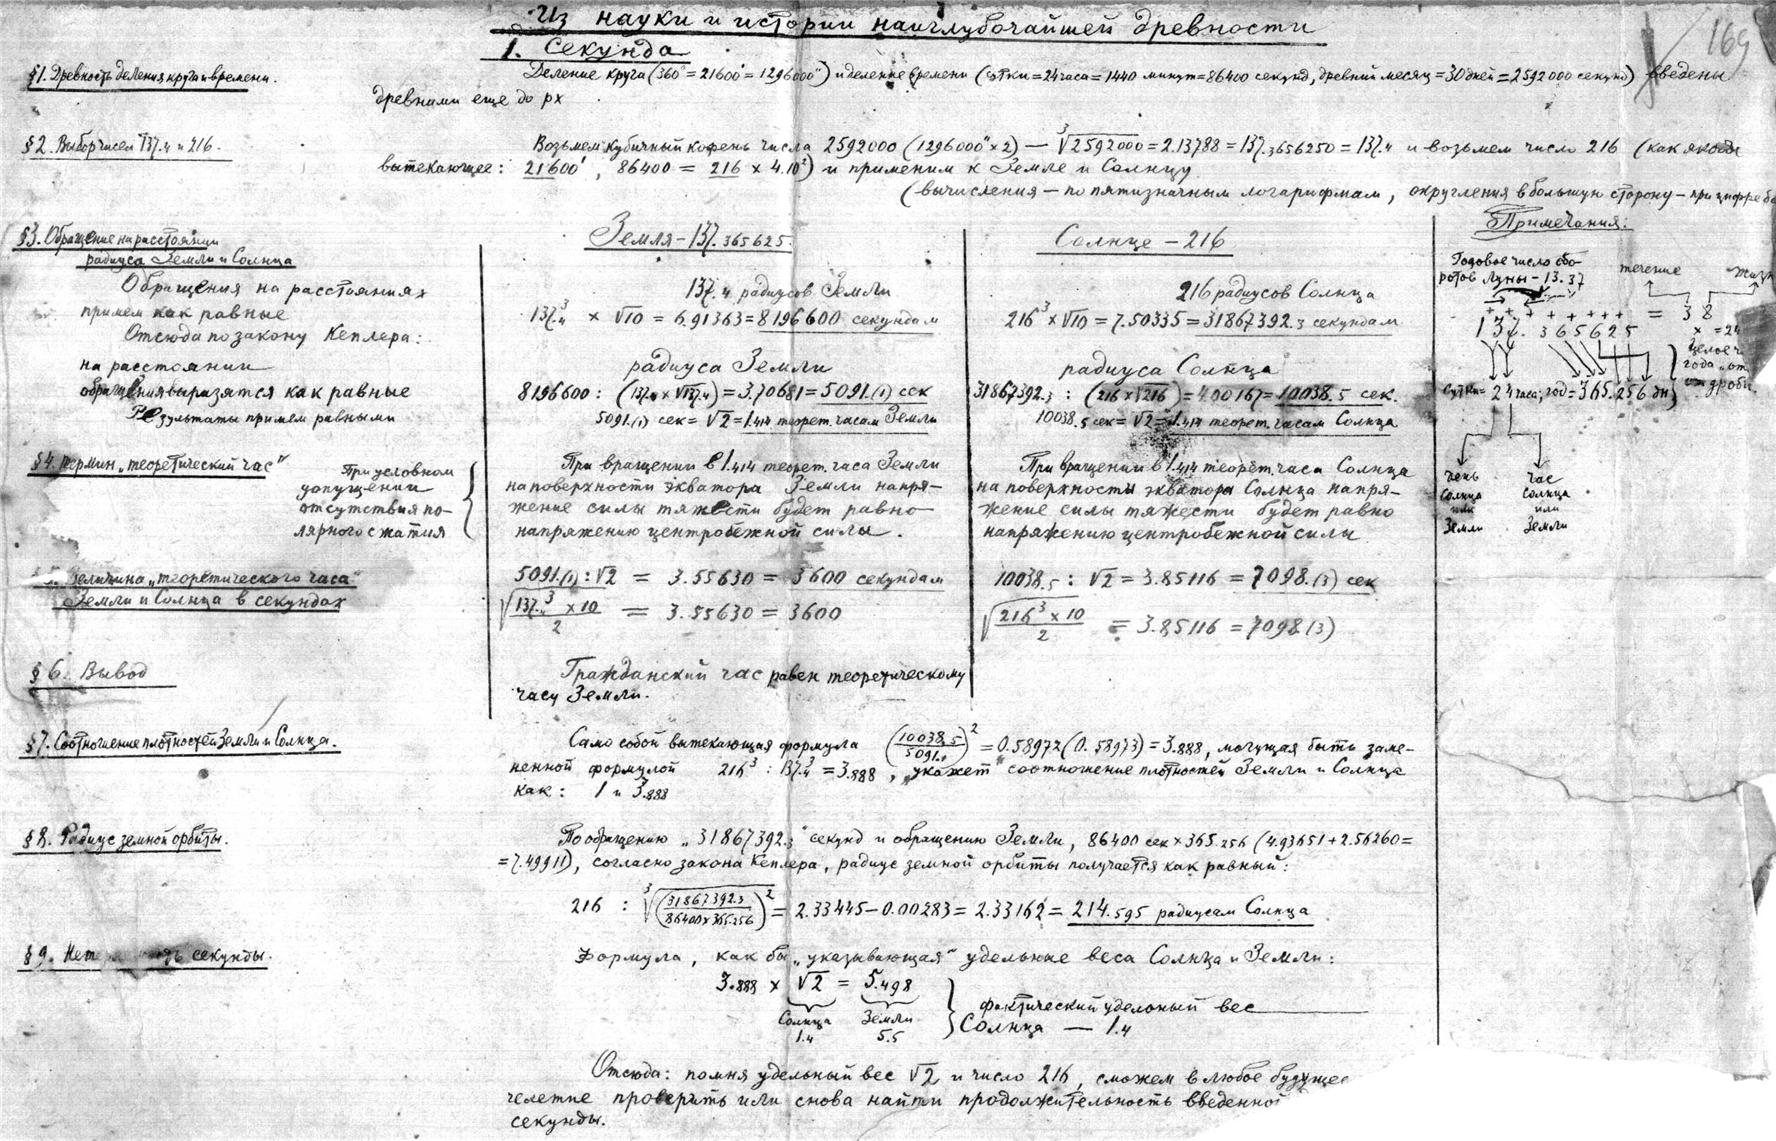 Из науки и истории наиглубочайшей древности
169
1. Секунда
§1. Древность деления круга и времени.
Деление круга (360° = 21600' = 1296000") и деление времени (сутки = 24 часа = 1440 минут = 86400 секунд, древний месяц = 30 дней = 2592000 секунд) введены
древними еще до рх
§2. Выбор чисел 137.4 и 216.
Возьмем кубичный корень числа 2592000 (1296000" × 2) — ∛2592000 = 2.13788 = 137.3656250 = 137.4 и возьмем число 216 (как
вытекающее: 21600', 86400 = 216 × 4.10²) и применим к Земле и Солнцу
(вычисления — по пятизначным логарифмам, округления в большую сторону — при цифре
§3. Обращение на расстоянии
радиуса Земли и Солнца
Обращения на расстояниях
примем как равные
Отсюда по закону Кеплера:
на расстоянии
обращения выразятся как равные
Результаты примем равными
Земля – 137.365625.
137.4 радиусов Земли
137.4³ × √10 = 6.91363 = 8196600 секундам
радиуса Земли
8196600 : (137.4 × √137.4) = 3.70681 = 5091.(1) сек
5091.(1) сек = √2 = 1.414 теорет. часам Земли
Солнце – 216
216 радиусов Солнца
216³ × √10 = 7.50335 = 31867392.3 секундам
радиуса Солнца
31867392.3 : (216 × √216) = 4.00167 = 10038.5 сек.
10038.5 сек = √2 = 1.414 теорет. часам Солнца
§4. Термин „теоретический час"
При условном
допущении
отсутствия по-
лярного сжатия
При вращении в 1.414 теорет. часа Земли
на поверхности экватора Земли напря-
жение силы тяжести будет равно
напряжению центробежной силы.
При вращении в 1.414 теорет. часа Солнца
на поверхности экватора Солнца напря-
жение силы тяжести будет равно
напряжению центробежной силы
Величина „теоретического часа"
Земли и Солнца в секундах
5091.(1) : √2 = 3.55630 = 3600 секундам
√137.4³ × 10 / 2 = 3.55630 = 3600
10038.5 : √2 = 3.85116 = 7098.(3) сек
√216³ × 10 / 2 = 3.85116 = 7098.(3)
§6. Вывод
Гражданский час равен теоретическому
часу Земли.
Примечания:
Годовое число обо-
ротов Луны – 13.37
течение
+ + + + + + + + = 38
137.365625 × = 24
Целое
года „от
дроби
сутки = 24 часа, год = 365.256 дн
Солнца
или
Земли
час
Солнца
или
Земли
§7. Соотношение плотностей Земли и Солнца.
Само собой вытекающая формула (10038.5 / 5091.1)² = 0.58972 (0.58973) = 3.888, могущая быть заме-
ненной формулой 216³ : 137.4³ = 3.888, „укажет" соотношение плотностей Земли и Солнца
как: 1 и 3.888
§8. Радиус земной орбиты.
По обращению „31867392.3" секунд и обращению Земли, 86400 сек × 365.256 (4.93651 + 2.56260 =
= 7.49911), согласно закона Кеплера, радиус земной орбиты получается как равный:
216 : ∛(31867392.3 / 86400 × 365.256)² = 2.33445 – 0.00283 = 2.33162 = 214.595 радиусам Солнца
§9. секунды.
Формула, как бы „указывающая" удельные веса Солнца и Земли:
3.888 × √2 = 5.498
Солнца Земли
1.4 5.5
фактический удельный вес
Солнца — 1.4
Отсюда: помня удельный вес √2 и число 216, сможем в любое
челетие проверить или снова найти продолжительность введенной
секунды.